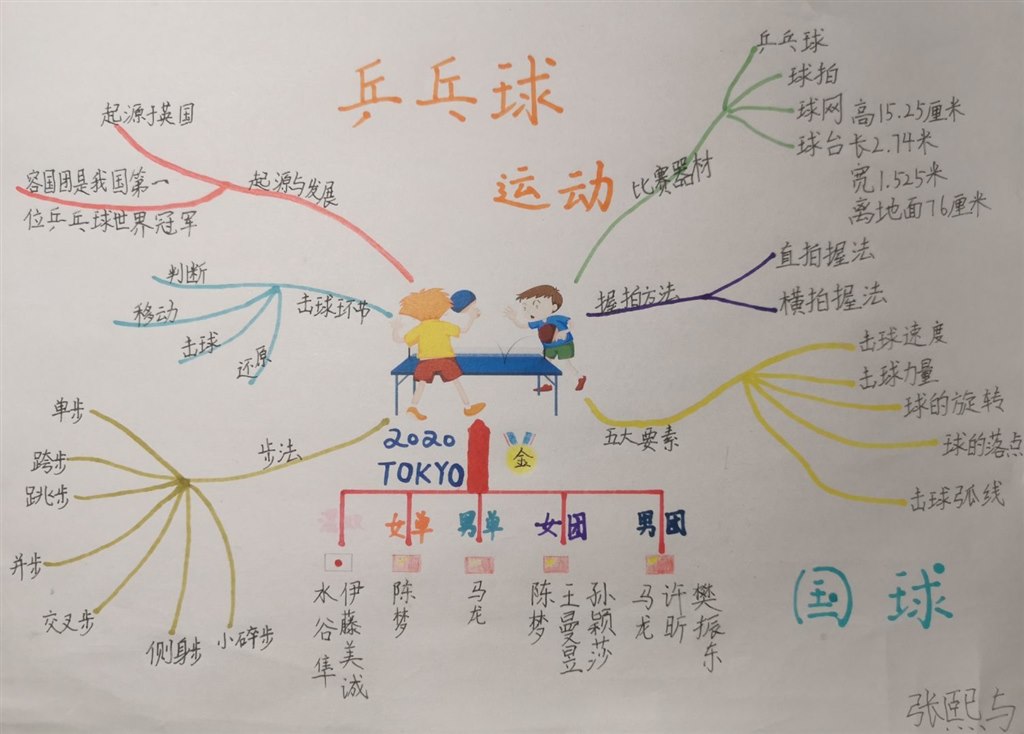 乒乓球
运动
起源于英国
容国团是我国第一
位乒乓球世界冠军
起源与发展
判断
移动
击球
还原
击球环节
单步
跨步
跳步
并步
交叉步
侧身步
小碎步
步法
乒乓球
球拍
球网 高15.25厘米
球台 长2.74米
宽1.525米
离地面76厘米
比赛器材
直拍握法
横拍握法
握拍方法
击球速度
击球力量
球的旋转
球的落点
击球弧线
五大要素
2020
TOKYO
金
混双
女单
男单
女团
男团
伊藤美诚
水谷隼
陈梦
马龙
孙颖莎
王曼昱
陈梦
樊振东
许昕
马龙
国球
张熙与